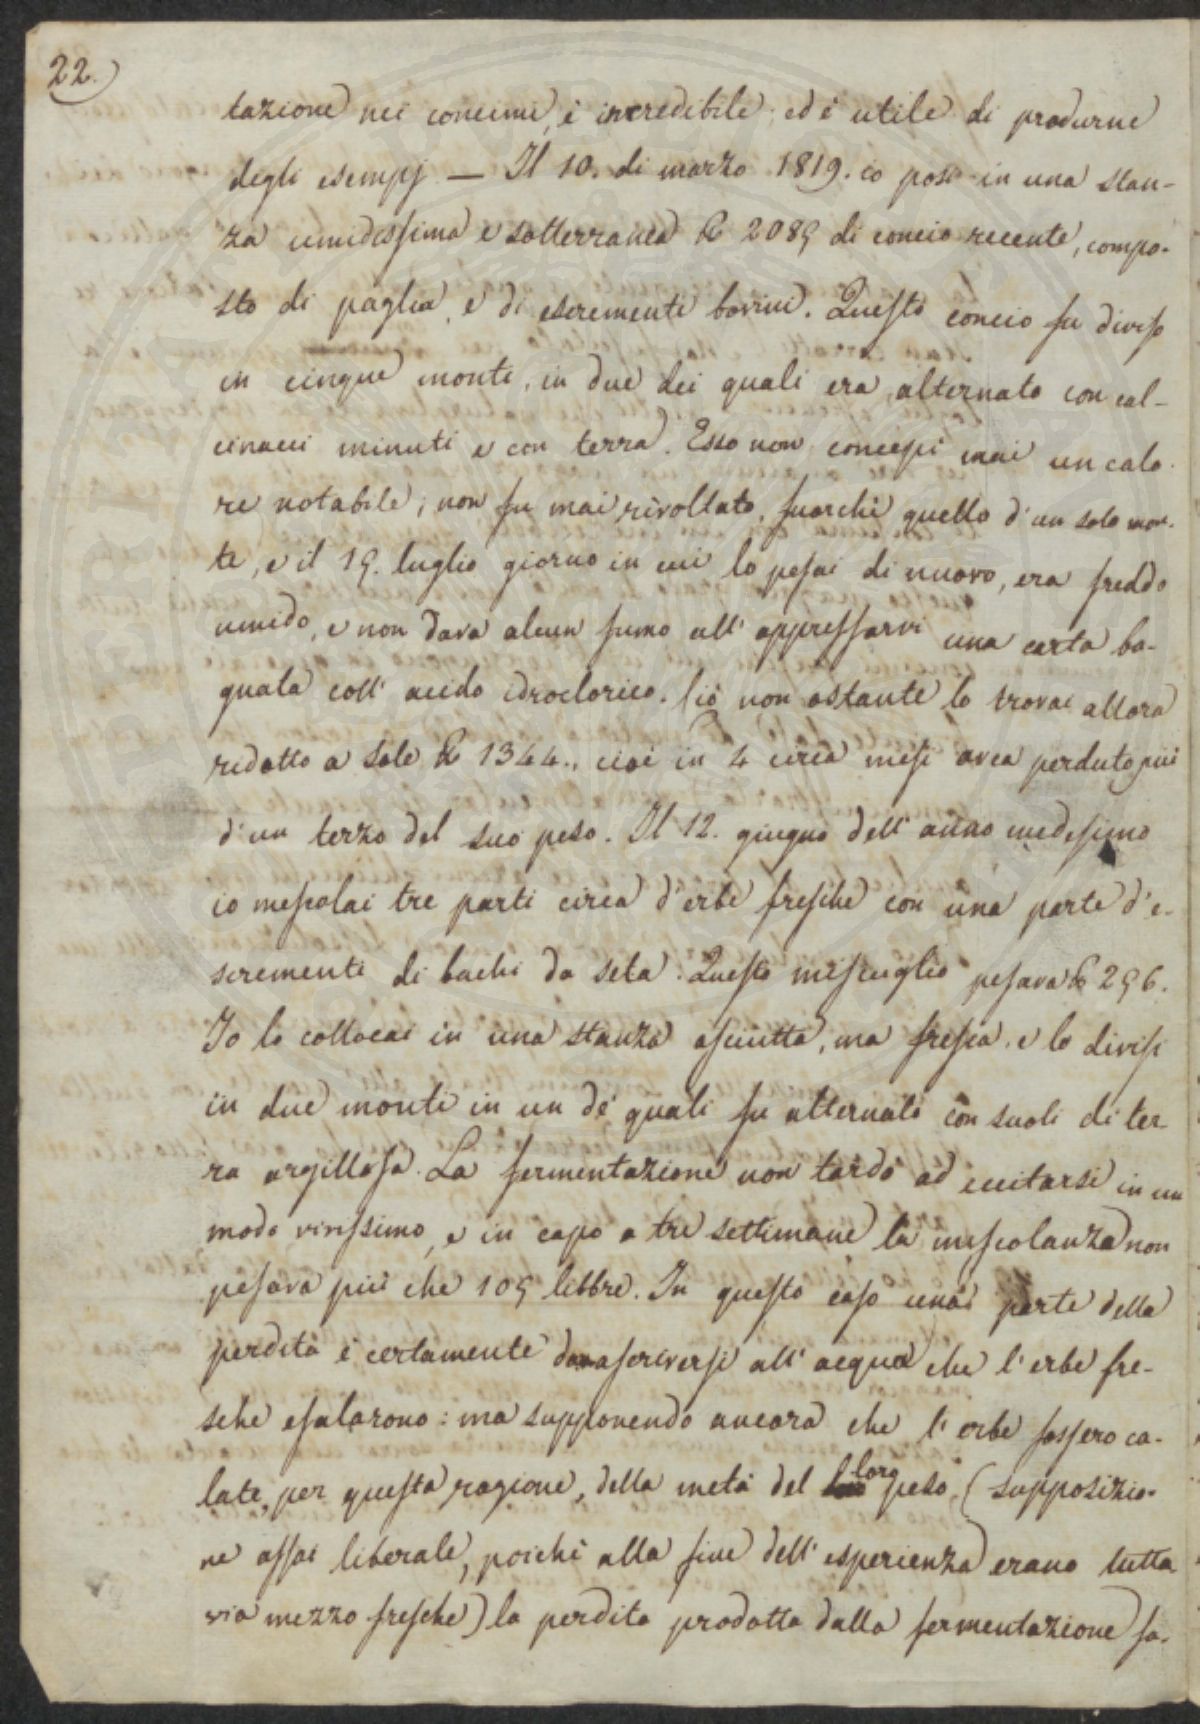 22.
tazione nei concimi, è incredibile; ed è utile di produrne
degli esempj — Il 10. di marzo 1819. io posi in una stan-
za umidissima e sotterranea ℔ 2085 di concio recente, compo-
sto di paglia, e di escrementi bovini. Questo concio fu diviso
in cinque monti, in due dei quali era alternato con cal-
cinacci minuti e con terra. Esso non concepì mai un calo-
re notabile; non fu mai rivoltato, fuorchè quello d'un solo mon-
te, e il 15. luglio giorno in cui lo pesai di nuovo, era freddo
umido, e non dava alcun fumo all'appressarvi una carta ba-
gnata coll'acido idroclorico. Ciò non ostante lo trovai allora
ridotto a sole ℔ 1344., cioè in 4 circa mesi avea perduto più
d'un terzo del suo peso. Il 12. giugno dell'anno medesimo
io mescolai tre parti circa d'erbe fresche con una parte d'e-
scrementi di bachi da seta. Questo miscuglio pesava ℔ 256.
Io lo collocai in una stanza asciutta, ma fresca, e lo divisi
in due monti in un de' quali fu alternato con suoli di ter-
ra argillosa. La fermentazione non tardò ad eccitarsi in un
modo vivissimo, e in capo a tre settimane la mescolanza non
pesava più che 105 libbre. In questo caso una parte della
perdita è certamente da ascriversi all'acqua che l'erbe fre-
sche esalarono: ma supponendo ancora che l'erbe fossero ca-
late, per questa ragione, della metà del loro peso (supposizio-
ne assai liberale, poichè alla fine dell'esperienza erano tutta
via mezzo fresche) la perdita prodotta dalla fermentazione sa-